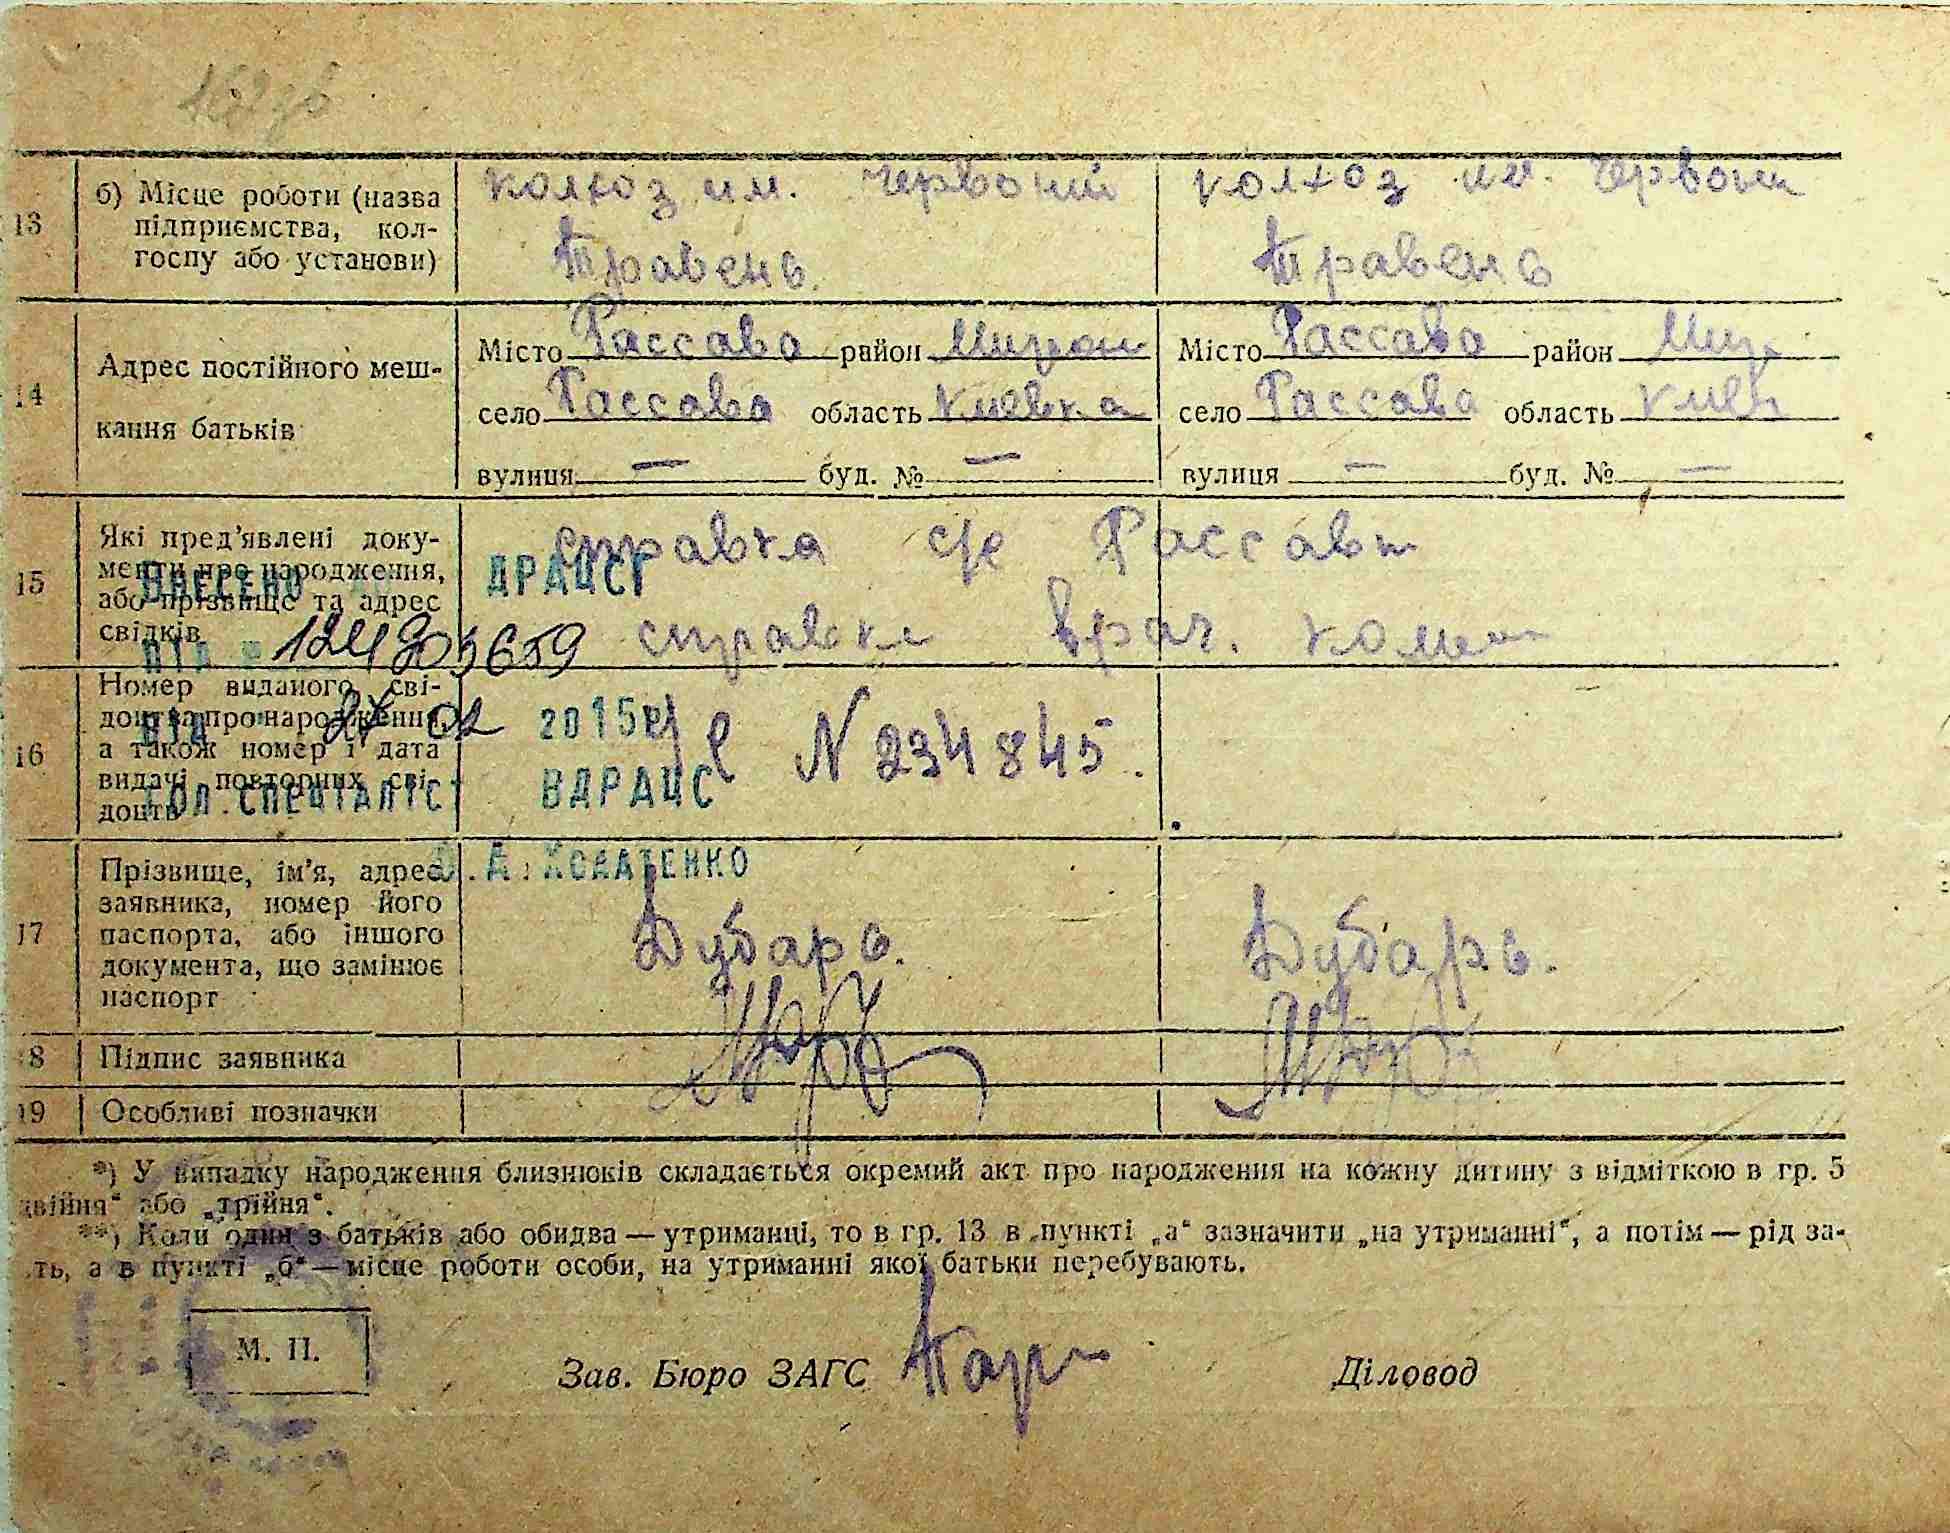 13
б) Місце роботи (назва
підприємства, кол-
госпу або установи)
колхоз им. Червоний
Травень
колхоз им. Червони
Травень
14
Адрес постійного меш-
кання батьків
Місто Рассава район Мирон
село Рассава область Киевка
вулиця — буд. № —
Місто Рассава район Мир
село Рассава область Киев
вулиця — буд. № —
15
Які пред'явлені доку-
менти про народження,
або прізвище та адрес
свідків
справка с/с Рассавы
справка врач. комис
ВНЕСЕНО ДРАЦСГ
16
Номер виданого сві-
доцтва про народження,
а також номер і дата
видачі повторних сві-
доцтв
N 234845.
ВІД 27 02 2015р
ГОЛ. СПЕЦІАЛІСТ ВДРАЦС
17
Прізвище, ім'я, адрес
заявника, номер його
паспорта, або іншого
документа, що замінює
паспорт
Дубарь.
Дубарь.
18
Підпис заявника
19
Особливі позначки
*) У випадку народження близнюків складається окремий акт про народження на кожну дитину з відміткою в гр. 5
двійня“ або „трійня“.
**) Коли один з батьків або обидва — утриманці, то в гр. 13 в пункті „а“ зазначити „на утриманні“, а потім — рід за-
ть, а в пункті „б“ — місце роботи особи, на утриманні якої батьки перебувають.
М. П.
Зав. Бюро ЗАГС
Діловод